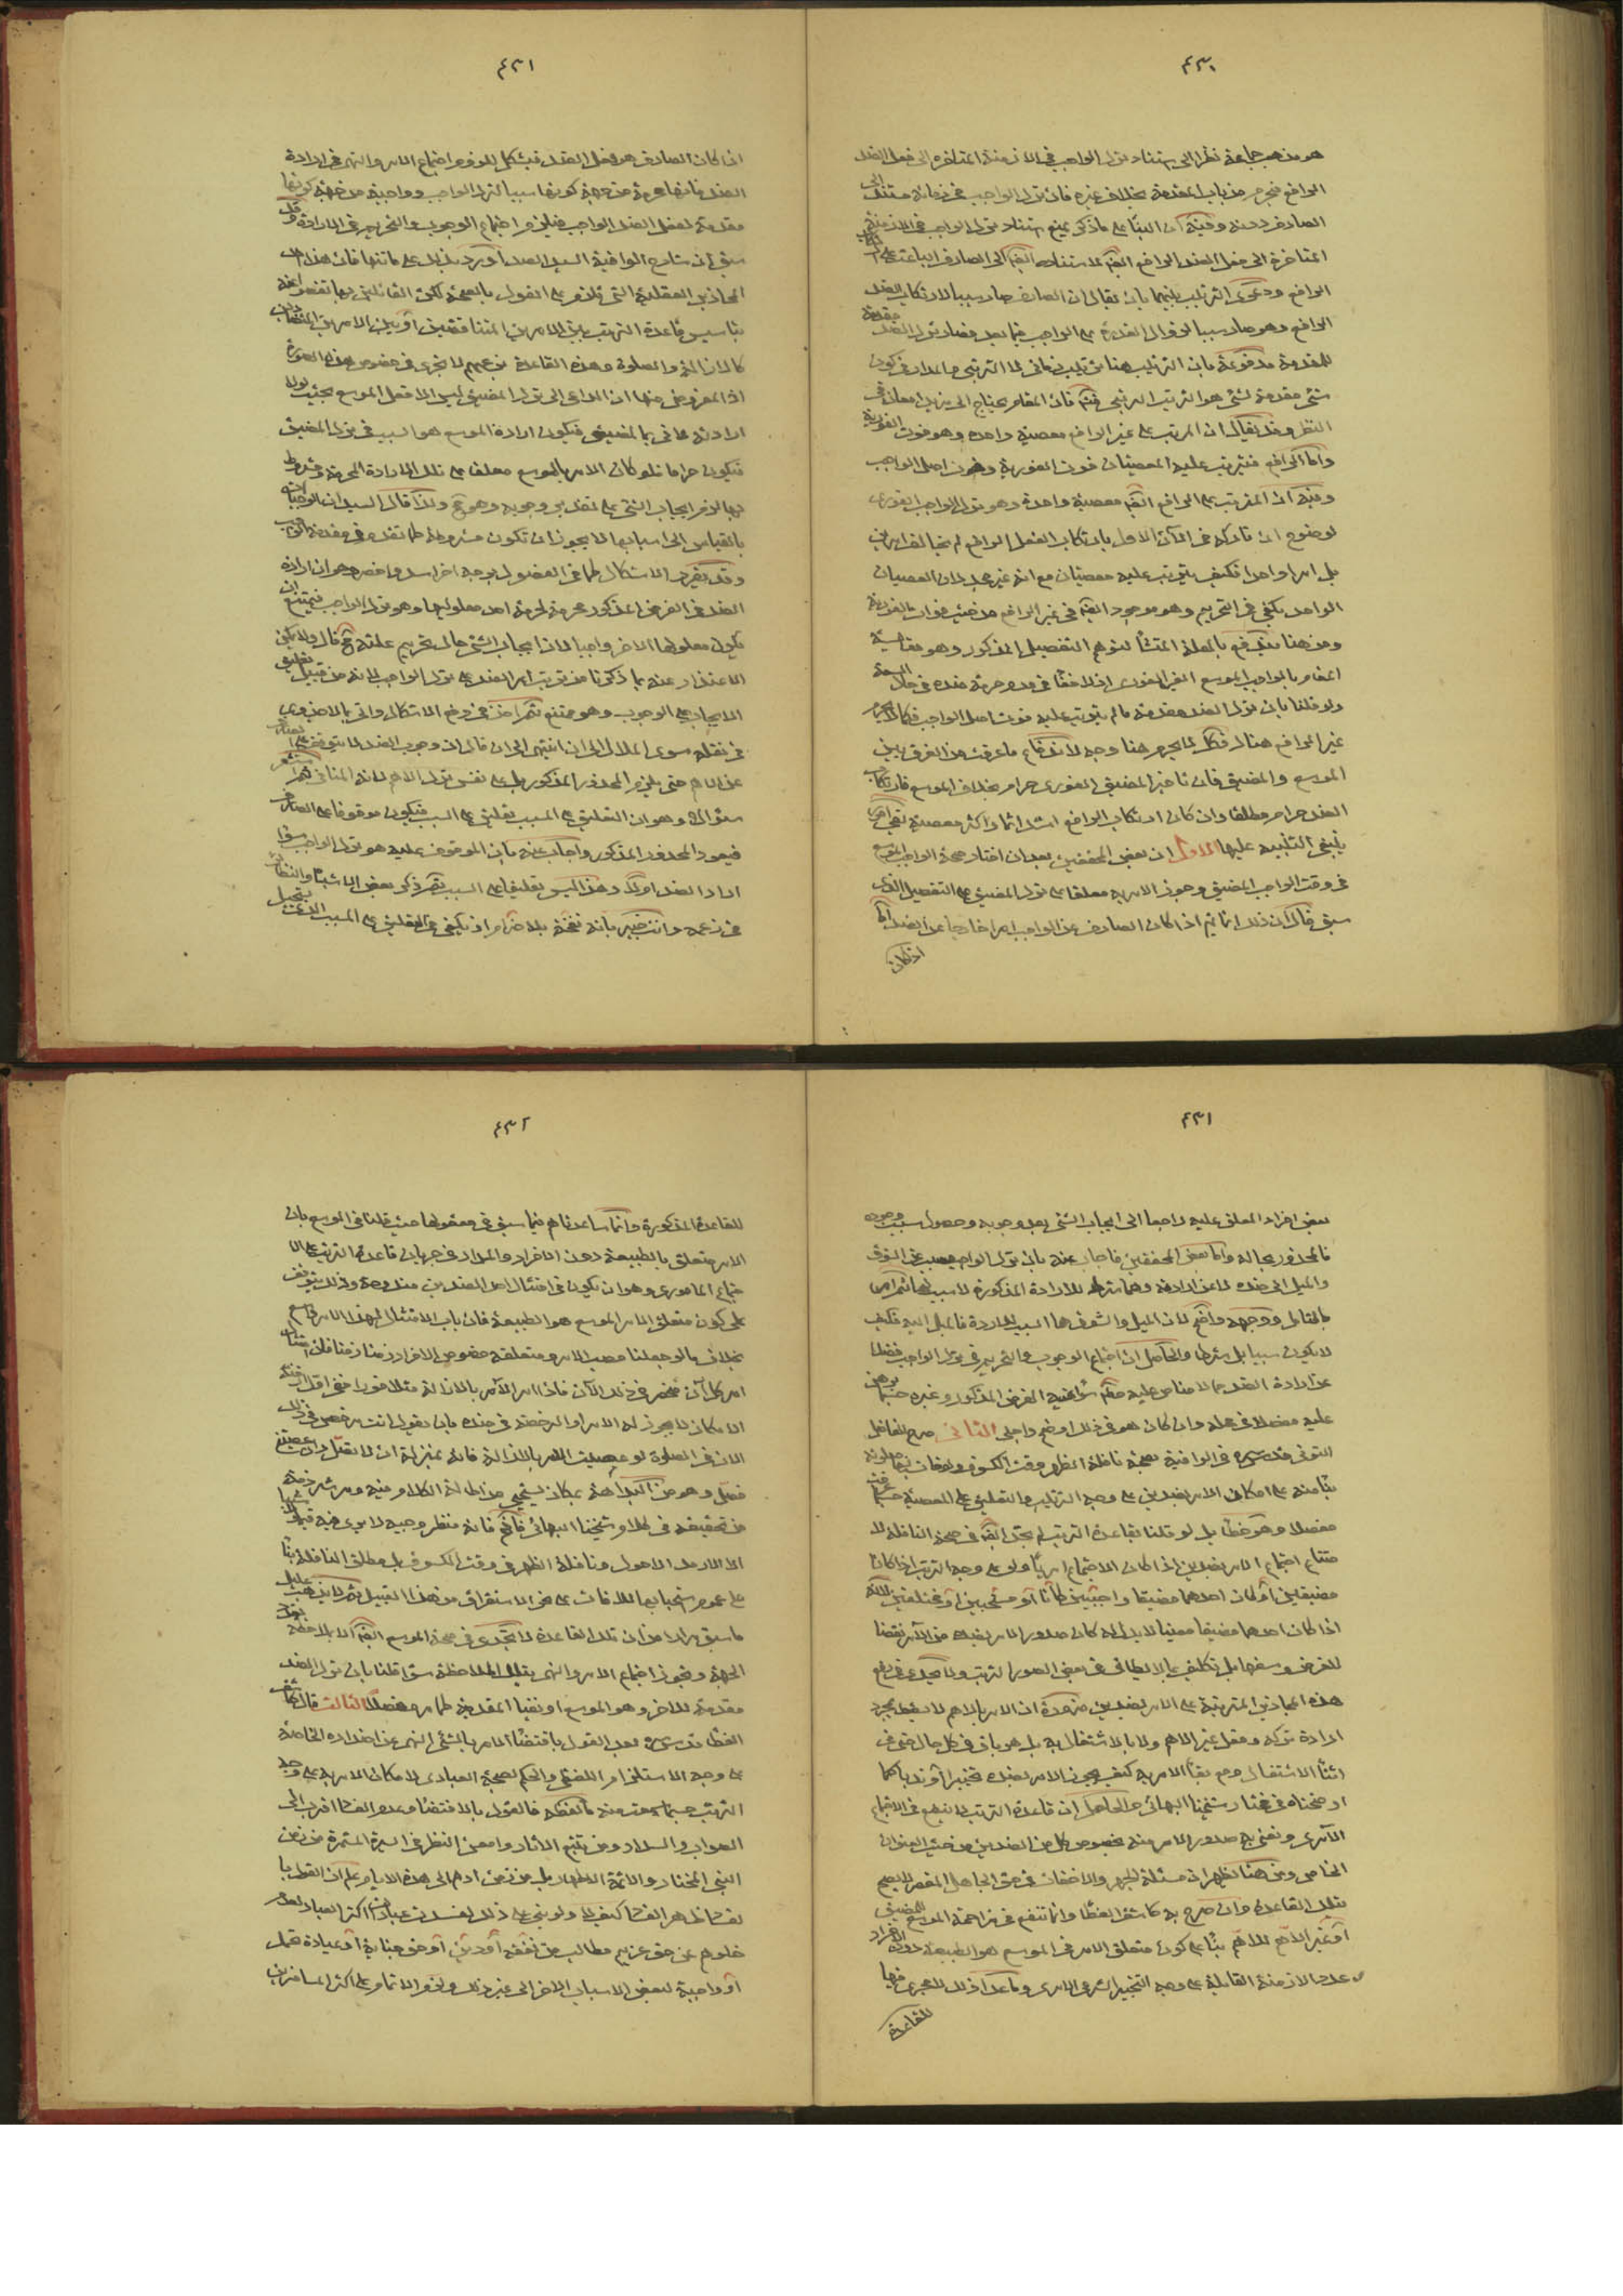 ٤٣٠
هو مذهب جماعة نظرا الى استناد ترك الواجب في الازمنة المتاخرة الى فعل الضد
الرافع فيحرم من باب المقدمة بخلاف غيره فان ترك الواجب في زمانه مستند الى
الصارف دونه وفيه ان البناء على ما ذكر يمنع استناد ترك الواجب في الازمنة
المتاخرة الى فعل الضد الرافع ايضا لاستناده ايضا الى الصارف الباعث على
الرافع ودعوى الترتيب بينهما بان يقال ان الصارف صار سببا لارتكاب الضد
الرافع وهو صار سببا لزوال القدرة على الواجب فيما بعد فصار ترك الضد مقدمة
للمقدمة مدفوعة بان الترتيب هنا ترتيب زماني لا الترتبي والمدار في كون
شيء مقدمة لشيء هو الترتيب الرتبي فتأمل فان المقام يحتاج الى مزيد امعان في
النظر وقد يقال ان المرتب على غير الرافع معصية واحدة وهو فوت الفورية
واما الرافع فيترتب عليه المعصيتان فوت الفورية وفوت اصل الواجب
وفيه ان المترتب على الرافع ايضا معصية واحدة وهو ترك الواجب الفوري
لوضوح ان تاركه في الآن الاول بارتكاب الفعل الرافع لم يخالف امرين
بل امرا واحدا فكيف يترتب عليه معصيتان مع انه غير مجد لان العصيان
الواحد يكفي في التحريم وهو موجود ايضا في غير الرافع من حيث فوات الفورية
ومن هنا يندفع بالمعاملة المنشأ لتوهم التفصيل المذكور وهو مقايسة
المقام بالواجب الموسع الغير الفوري اذ لا خفاء في عدم حرمة ضده في حال السعة
ولو قلنا بان ترك الضد مقدمة ما لم يترتب عليه فوت اصل الواجب فكما لا يحرم
غير الرافع هناك فكذا لا يحرم هنا وجه الاندفاع ما عرفت من الفرق بين
الموسع والمضيق فان تاخير المضيق الفوري حرام بخلاف الموسع فارتكاب
الضد حرام مطلقا وان كان ارتكاب الرافع اشد اثما واكثر معصية بقي امور
ينبغي التنبيه عليها الاول ان بعض المحققين بعد ان اختار صحة الواجب الموسع
في وقت الواجب المضيق وجوز الامر به معلقا على ترك المضيق على التفصيل الذي
سبق قال ان ذلك انما يتم اذا كان الصارف عن الواجب امرا خارجا عن الضد اما
اذا كان
٤٣١
اذا كان الصارف هو فعل الضد فيشكل للزوم اجتماع الامر والنهي في ارادة
الضد فانها محرمة من جهة كونها سببا لترك الواجب وواجبة من جهة كونها
مقدمة لفعل الضد الواجب فيلزم اجتماع الوجوب والتحريم في الارادة وقد
سبق ان شارح الوافية السيد الصدر اورد بذلك على ما
المحاذير العقلية التي تلزم على القول بالصحة لكن القائلين بها تفصوا عنه
بتأسيس قاعدة الترتب بين الامرين المتناقضين او بين الامرين المتضادين
كالازالة والصلوة وهذه القاعدة بزعمهم لا تجري في خصوص هذه الصورة
اذ المفروض فيها ان الداعي الى ترك المضيق ليس الا فعل الموسع بحيث لولا
ارادته لاتى بالمضيق فيكون ارادة الموسع هو السبب في ترك المضيق
فيكون حراما فلو كان الامر بالموسع معلقا على تلك الارادة المحرمة ومشروطا
بها لزم ايجاب الشيء على تقدير وجوبه وهو مح ولذا قال السيد ان الواجبات
بالقياس الى اسبابها لا يجوز ان تكون مشروطة لما تقدم في مقدمة الواجب
وقد يقرر الاشكال كما في الفصول بوجه اخر اسد واخصر وهو ان ارادة
الضد في الفرض المذكور محرمة لحرمة احد معلوليها وهو ترك الواجب فيمتنع ان
يكون معلولها الاخر واجبا لان ايجاب الشيء حال تحريم علته مح قال ولا يمكن
الاعتذار عنه بما ذكرنا من ترتب امر الضد على ترك الواجب لانه من قبيل تعليق
الايجاب على الوجوب وهو ممتنع ثم اخذ في دفع الاشكال واتى بما لا جدوى
في نقله سوى الملال الى ان انتهى الى ان قال ان وجوب الضد لا يتوقف على الصارف
عن الاهم حتى يلزم المحذور المذكور بل على نفس ترك الاهم لانه المنافي
سؤالا وهو ان التعليق على المسبب تعليق على السبب فيكون موقوفا على الصارف
فيعود المحذور المذكور واجاب عنه بان الموقوف عليه هو ترك الواجب سواء
اراد الضد ام لا وهذا ليس تعليقا على السبب ثم ذكر بعض الاشباه والنظائر
في زعمه وانت خبير بانه نفخة بلا ضرام اذ يكفي في التعليق على المسبب
٤٣١
بعض افراد المعلق عليه راجعا الى ايجاب الشيء بعد وجوبه وحصول سبب وجوده
فالمحذور بحاله واما بعض المحققين فاجاب عنه بان ترك الواجب سبب عن الشوق
والميل الى ضده لا عن ارادته وهما شرط للارادة المذكورة لا سبب لها ثم امر
بالتأمل ووجهه واضح لان الميل والشوق هما السبب للارادة فالميل اليه فكيف
لا يكون سببا بل شرطا والحاصل ان اجتماع الوجوب والتحريم في ترك الواجب فضلا
عن ارادة الضد مما لا مناص عليه حتى في غير الفرض المذكور وغيره
عليه مفصلا في محله وان كان هو في ذلك اوضح واجلى الثاني صرح الفاضل
التوني قدس سره في الوافية بصحة نافلة الظهر وقت الكسوف ولو فات
بناء منه على امكان الامر بضدين على وجه الترتيب والتعليق على المعصية حسبما عرفت
مفصلا وهو خطأ بل لو قلنا بقاعدة الترتب لم يجز ايضا في صحة النافلة لا
متناع اجتماع الامر بضدين اذا كان الاجتماع امريا ولو على وجه الترتب اذا كانا
مضيقين او كان احدهما مضيقا واجبين كانا او مستحبين او مختلفين لانه
اذا كان احدهما مضيقا معينا لا بدل له كان صدور الامر بضده من الآمر نقضا
للغرض وسفها بل تكليفا بما لا يطاق في بعض الصور الترتب ولا يجدي في دفع
هذه المحاذير المترتبة على الامر بضدين ضرورة ان الامر بالاهم لا يسقط بمجرد
ارادة تركه وفعل غير الاهم ولا بالاشتغال به بل هو باق في كل حال حتى في
اثناء الاشتغال ومع بقاء الامر به كيف يجوز الامر بضده تخييرا او ترتبا كما
اوضحناه في مختار شيخنا البهائي والحاصل ان قاعدة الترتب لا تنفع في الاجتماع
الآمري ونعني به صدور الامر منه بخصوص كل من الضدين من حيث العنوان
الخاص ومن هنا يظهر ان مسئلة الجهر والاخفات في حق الجاهل المقصر لا يصح
بتلك القاعدة وان صرح به كاشف الغطاء وانما تنفع في مزاحمة الموسع للمضيق
او غير الاهم للاهم بناء على كون متعلق الامر في الموسع هو الطبيعة دون الافراد
وعدد الازمنة القابلة على وجه التخيير الشرعي الامري وما عدا ذلك لا مجرى فيها
للقاعدة
٤٣٢
للقاعدة المذكورة وانما ساعدناهم فيما سبق في معقولها حيث قلنا في الموسع بان
الامر متعلق بالطبيعة دون الافراد والمدار في جريان قاعدة الترتب على الا
جتماع المأموري وهو ان يكون في امتثال احد الضدين مندوحة وذلك يتوقف
على كون متعلق الامر الموسع هو الطبيعة فان باب الامتثال لهذا الامر واسع
بخلاف ما لو جعلنا مصب الامر ومتعلقه خصوص الافراد زمنا زمنا فان امتثال
امر كل آن منحصر في ذلك الآن فاذا امر الآمر بالازالة مثلا فورا ففي اول ازمنة
الامكان لا يجوز له الامر او الرخصة في ضده بان يقول انت مرخص في ذلك
الان في الصلوة لو عصيت الامر بالازالة فانه بمنزلة ان لا تصل وان عصيتني
فصل وهو من البداهة بمكان يستحيى من اطالة الكلام فيه ومر شرذمة
من تحقيقه في كلام شيخنا البهائي فافهم فانه منظر وجيه لا يرى فيه
الا الاوحد الاحول ونافلة الظهر في وقت الكسوف بل مطلق النافلة بناء
على عموم استحبابها للاوقات على نحو الاستغراق من هذا القبيل ثم لا يذهب عليك
ما سبق مرارا من ان تلك القاعدة لا تجدي في صحة الموسع ايضا الا بملاحظة
الجهة وتجويز اجتماع الامر والنهي بتلك الملاحظة سواء قلنا بان ترك الضد
مقدمة للاخر وهو الموسع او نفينا المقدمية كما مر مفصلا الثالث قال كاشف
الغطاء قدس سره بعد القول باقتضاء الامر بالشيء النهي عن اضداده الخاصة
على وجه الاستلزام اللفظي والحكم بصحة العبادة لامكان الامر به على وجه
الترتب حسبما سمعت منه ما لفظه فالقول بالاقتضاء وعدم الفساد اقرب الى
الصواب والسداد ومن تتبع الاثار وامعن النظر في السيرة المستمرة من زمن
النبي المختار والائمة الاطهار بل من زمن ادم الى هذه الايام علم ان القول با
لفساد ظاهر الفساد كيف لا ولو بني على ذلك لفسدت عبادات اكثر العباد لعدم
خلوهم عن حق غريم مطالب من نفقة او دين او حق جناية او عبادة تحمل
او واجبة لبعض الاسباب الاخر الى غير ذلك ولزم الاتمام على اكثر المسافرين